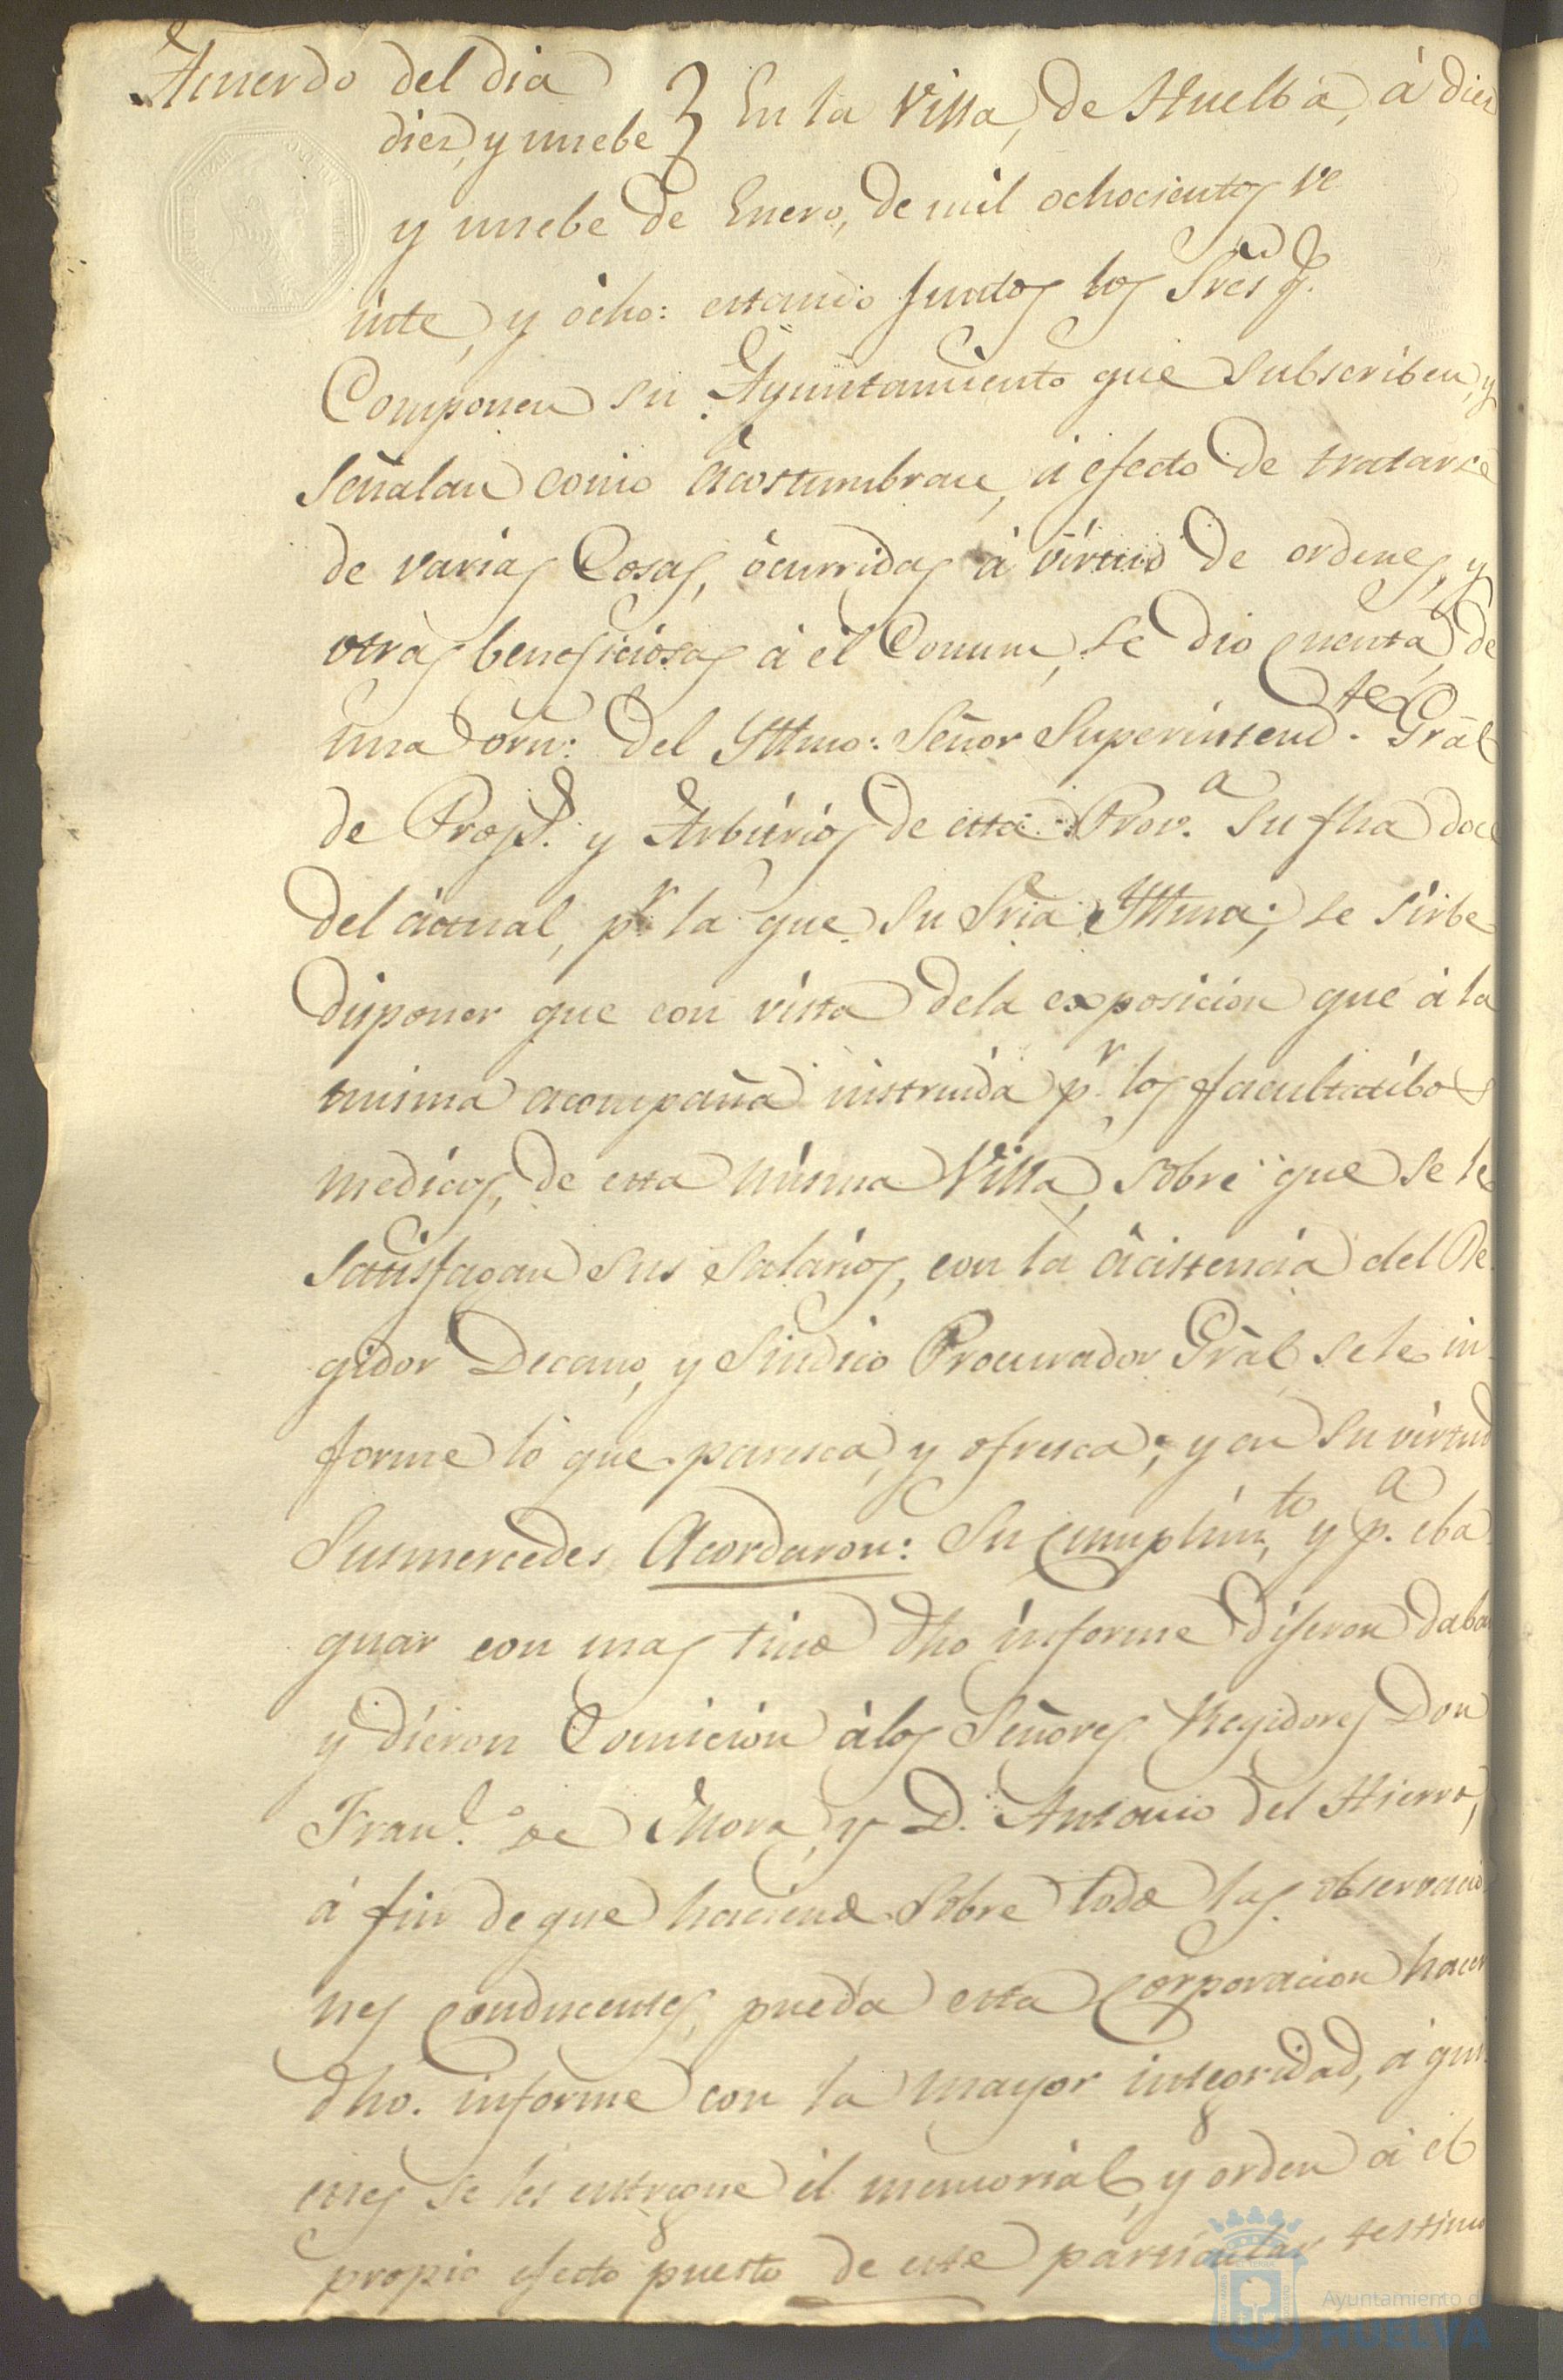 Acuerdo del dia
diez, y nuebe } En la Villa, de Huelba, á diez
y nuebe de Enero, de mil ochocientos ve
inte, y ocho: estando Juntos los Sres q.e
Componen su Ayuntamiento que Subscriben, y
Señalan como acostumbran, á efecto de tratarse
de varias Cosas, ocurridas á virtud de ordenes, y
otras beneficiosas á el Comun, se dio cuenta, de
una orn: del Yttmo: Señor Superintend.te Gral
de Prop.s y Arbitrios de esta Prov.a Su fha doce
del actual, p.r la que Su Sria Yttma; se sirbe
disponer que con vista dela exposicion que á la
misma acompaña instruida p.r los facultatibos
medicos, de esta misma Villa, sobre que se le
Satisfagan sus Salarios, con la acistencia del Re
gidor Decano, y Sindico Procurador Gral se le in
forme lo que paresca, y ofresca; y en su virtud
Susmercedes Acordaron: Su Cumplim.to, y p.a eba
quar con mas tino dho informe dijeron daban
y dieron Comicion á los Señores Regidores Don
Fran.co de Mora, y D. Antonio del Hierro,
á fin de que haciendo sobre todo las observacio
nes conducentes, pueda esta Corporacion hacer
dho. informe con la mayor integridad, á qui
enes se les entregue el memorial, y orden á el
propio efecto puesto de este particular testimo
Ayuntamiento d
HUELVA